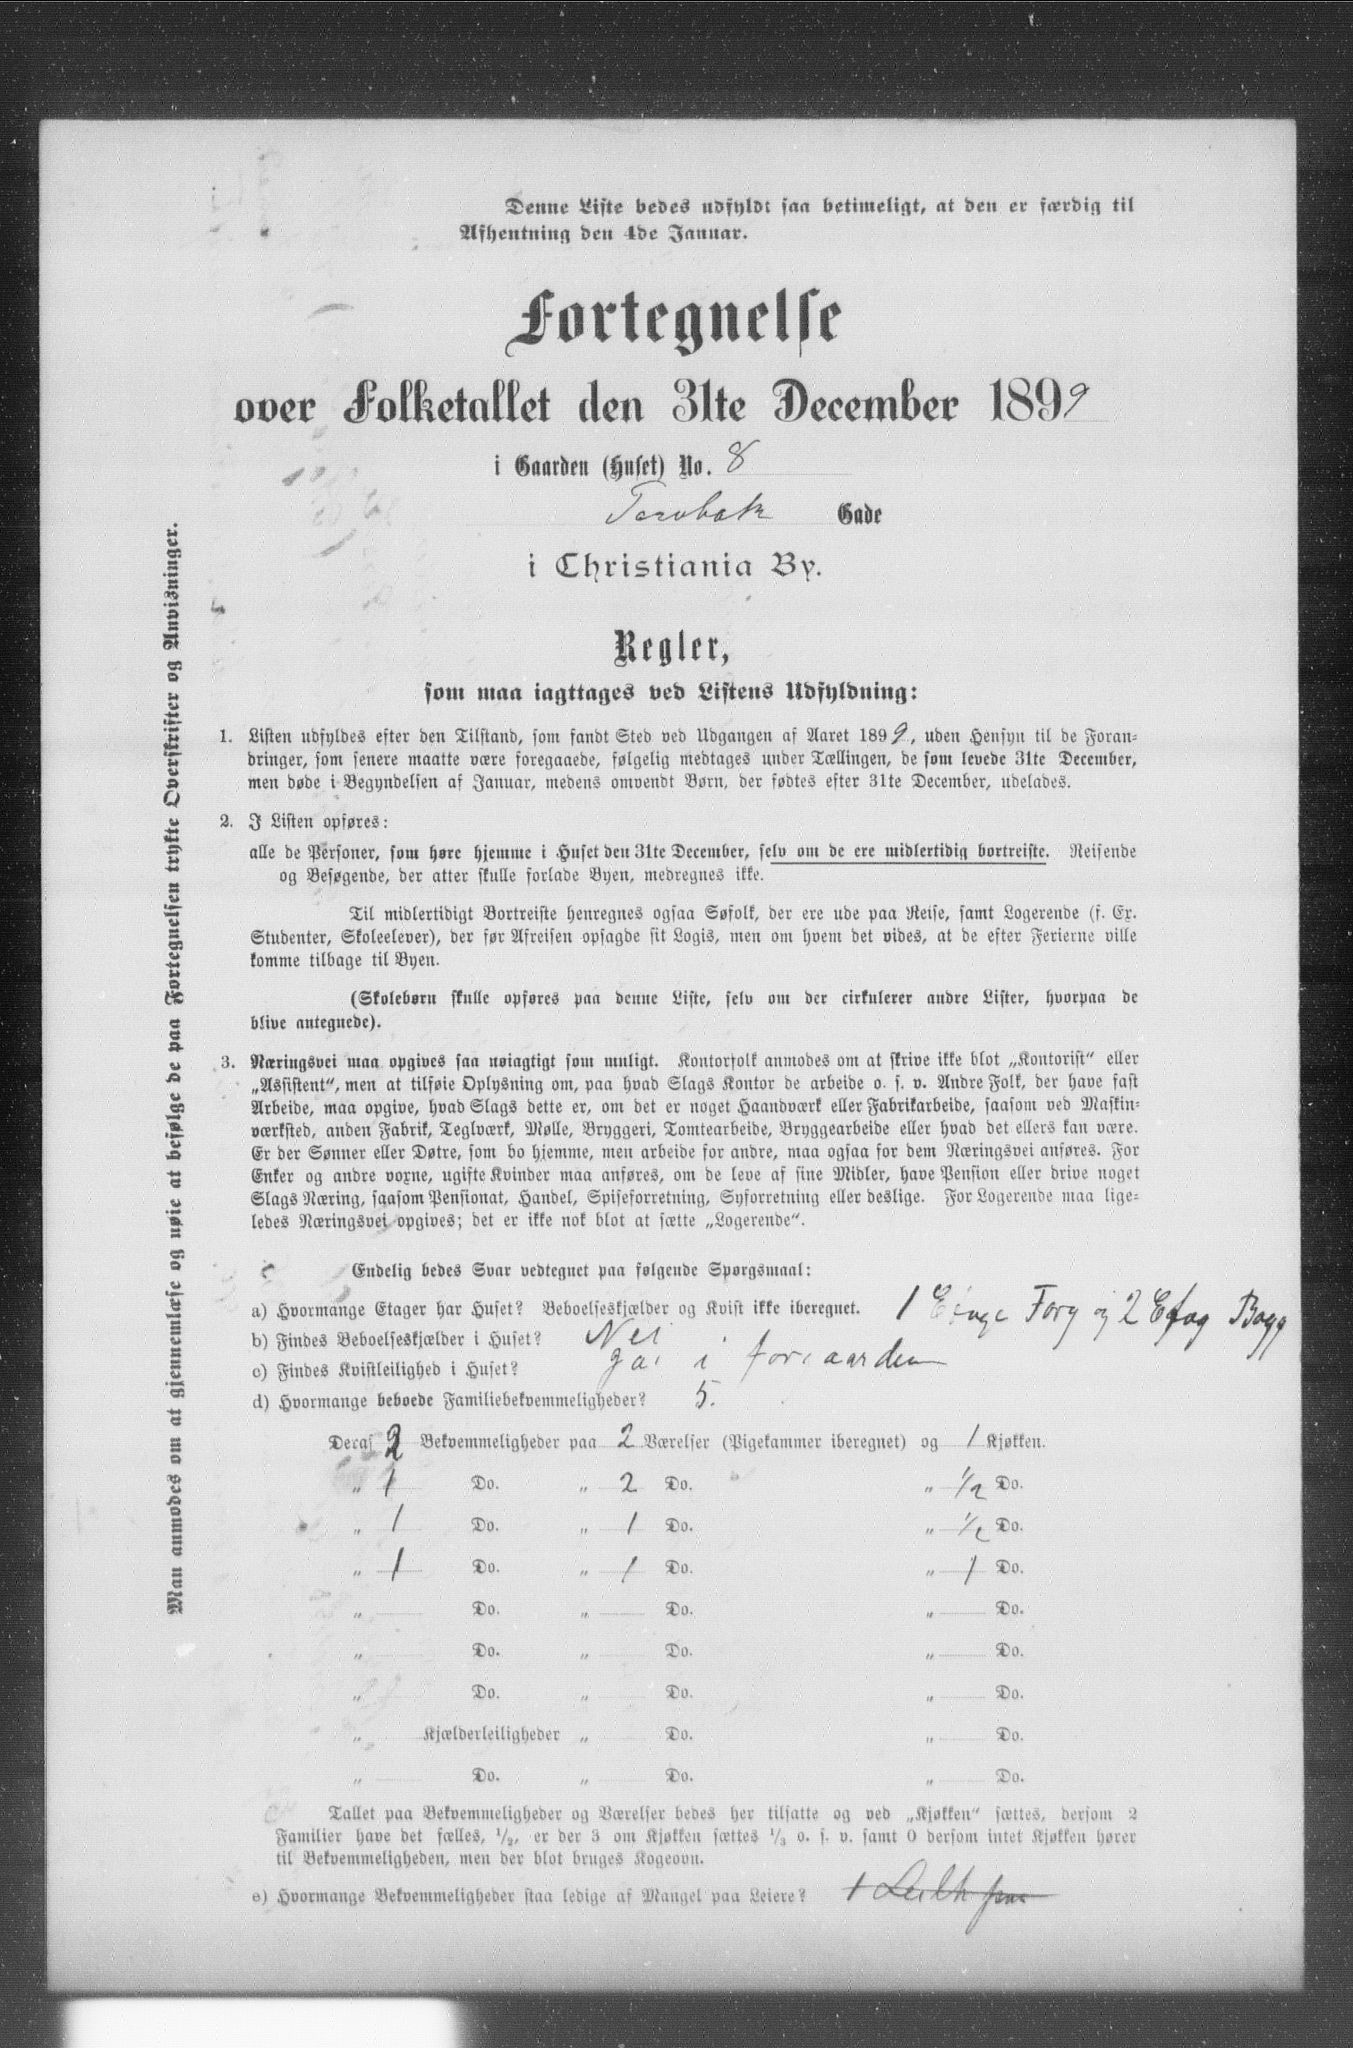 Denne Liste bedes udfyldt saa betimeligt, at den er færdig til
Afhentning den 4de Januar.
Fortegnelse
over Folketallet den 31te December 1899
i Gaarden (Huset) No. 8
Torvbak Gade
i Christiania By.
Regler,
som maa iagttages ved Listens Udfyldning:
1. Listen udfyldes efter den Tilstand, som fandt Sted ved Udgangen af Aaret 1899, uden Hensyn til de Foran-
dringer, som senere maatte være foregaaede, følgelig medtages under Tællingen, de som levede 31te December,
men døde i Begyndelsen af Januar, medens omvendt Børn, der fødtes efter 31te December, udelades.
2. I Listen opføres:
alle de Personer, som høre hjemme i Huset den 31te December, selv om de ere midlertidig bortreiste. Reisende
og Besøgende, der atter skulle forlade Byen, medregnes ikke.
Til midlertidigt Bortreiste henregnes ogsaa Søfolk, der ere ude paa Reise, samt Logerende (f. Ex.
Studenter, Skoleelever), der før Afreisen opsagde sit Logis, men om hvem det vides, at de efter Ferierne ville
komme tilbage til Byen.
(Skolebørn skulle opføres paa denne Liste, selv om der cirkulerer andre Lister, hvorpaa de
blive antegnede).
3. Næringsvei maa opgives saa nøiagtigt som muligt. Kontorfolk anmodes om at skrive ikke blot „Kontorist“ eller
„Assistent“, men at tilføie Oplysning om, paa hvad Slags Kontor de arbeide o. s. v. Andre Folk, der have fast
Arbeide, maa opgive, hvad Slags dette er, om det er noget Haandværk eller Fabrikarbeide, saasom ved Maskin-
værksted, anden Fabrik, Teglværk, Mølle, Bryggeri, Tomtearbeide, Bryggearbeide eller hvad det ellers kan være.
Er der Sønner eller Døtre, som bo hjemme, men arbeide for andre, maa ogsaa for dem Næringsvei anføres. For
Enker og andre vorne, ugifte Kvinder maa anføres, om de leve af sine Midler, have Pension eller drive noget
Slags Næring, saasom Pensionat, Handel, Spiseforretning, Syforretning eller deslige. For Logerende maa lige-
ledes Næringsvei opgives; det er ikke nok blot at sætte „Logerende“.
Endelig bedes Svar vedtegnet paa følgende Spørgsmaal:
a) Hvormange Etager har Huset? Beboelseskjælder og Kvist ikke iberegnet. 1 Forg og 2 Etag Bagg
b) Findes Beboelseskjælder i Huset? Nei
c) Findes Kvistleilighed i Huset? Ja i forgaarden
d) Hvormange beboede Familiebekvemmeligheder? 5.
Deraf 2 Bekvemmeligheder paa 2 Værelser (Pigekammer iberegnet) og 1 Kjøkken.
„ 1 Do. „ 2 Do. „ 1/2 Do.
„ 1 Do. „ 1 Do. „ 1/2 Do.
„ 1 Do. „ 1 Do. „ 1 Do.
„ Do. „ Do. „ Do.
„ Do. „ Do. „ Do.
„ Do. „ Do. „ Do.
„ Kjælderleiligheder „ Do. „ Do.
„ Do. „ Do. „ Do.
Tallet paa Bekvemmeligheder og Værelser bedes her tilsatte og ved „Kjøkken“ sættes, dersom 2
Familier have det fælles, 1/2, er der 3 om Kjøkken sættes 1/3 o. s. v. samt 0 dersom intet Kjøkken hører
til Bekvemmeligheden, men der blot bruges Kogeovn.
e) Hvormange Bekvemmeligheder staa ledige af Mangel paa Leiere? 1
Man anmodes om at gjennemlæse og nøie at befølge de paa Fortegnelsen trykte Overskrifter og Anvisninger.